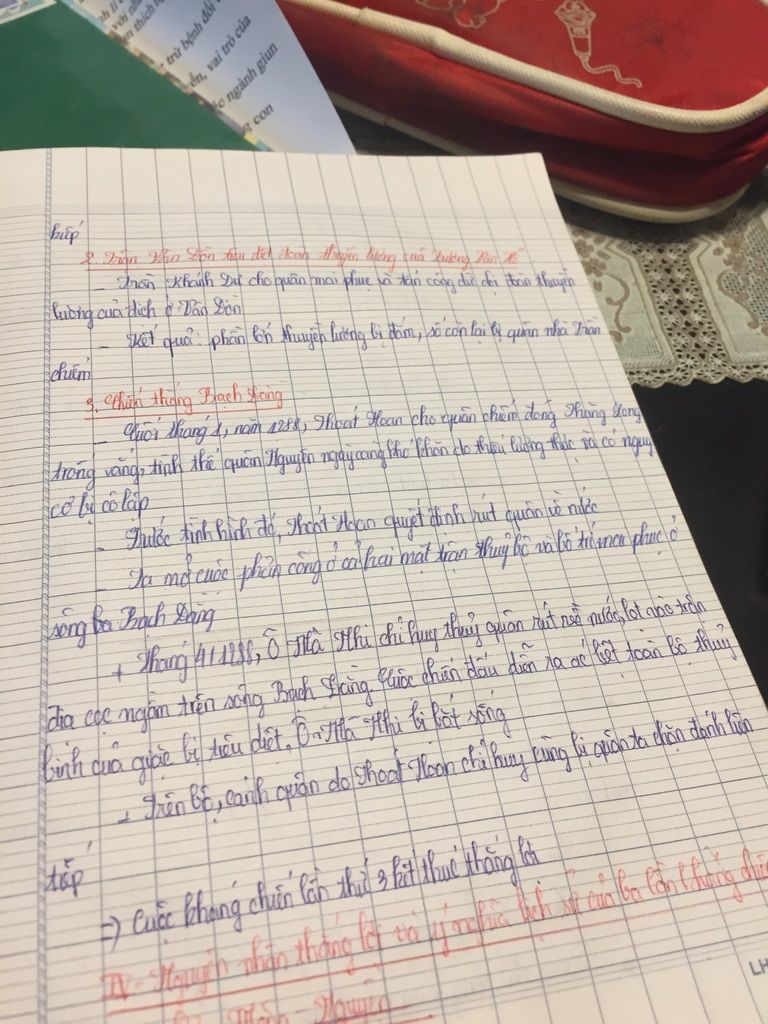 nh lí
với nh
ăn thích h
trừ bệnh đối v
ển, vai trò của
ốc ngành giun
g con
tiếp
2. Trận Vân Đồn tiêu diệt đoàn thuyền lương của Trương Văn Hổ
- Trần Khánh Dư cho quân mai phục và tấn công dữ dội đoàn thuyền
lương của địch ở Vân Đồn
- Kết quả: phần lớn thuyền lương bị đắm, số còn lại bị quân nhà Trần
chiếm
3. Chiến thắng Bạch Đằng
- Cuối tháng 1, năm 1288, Thoát Hoan cho quân chiếm đóng Thăng Long
trống vắng, tình thế quân Nguyên ngày càng khó khăn do thiếu lương thực và có nguy
cơ bị cô lập
- Trước tình hình đó, Thoát Hoan quyết định rút quân về nước
- Ta mở cuộc phản công ở cả hai mặt trận thuỷ bộ và bố trí mai phục ở
sông Bạch Đằng
+ Tháng 4/1288, Ô Mã Nhi chỉ huy thuỷ quân rút về nước, lọt vào trận
địa cọc ngầm trên sông Bạch Đằng. Cuộc chiến đấu diễn ra ác liệt toàn bộ thuỷ
binh của giặc bị tiêu diệt, Ô Mã Nhi bị bắt sống
+ Trên bộ, cánh quân do Thoát Hoan chỉ huy cũng bị quân ta chặn đánh liên
tiếp
=> Cuộc kháng chiến lần thứ 3 kết thúc thắng lợi
IV - Nguyên nhân thắng lợi và ý nghĩa lịch sử của ba lần kháng chiến
Mông - Nguyên
LH